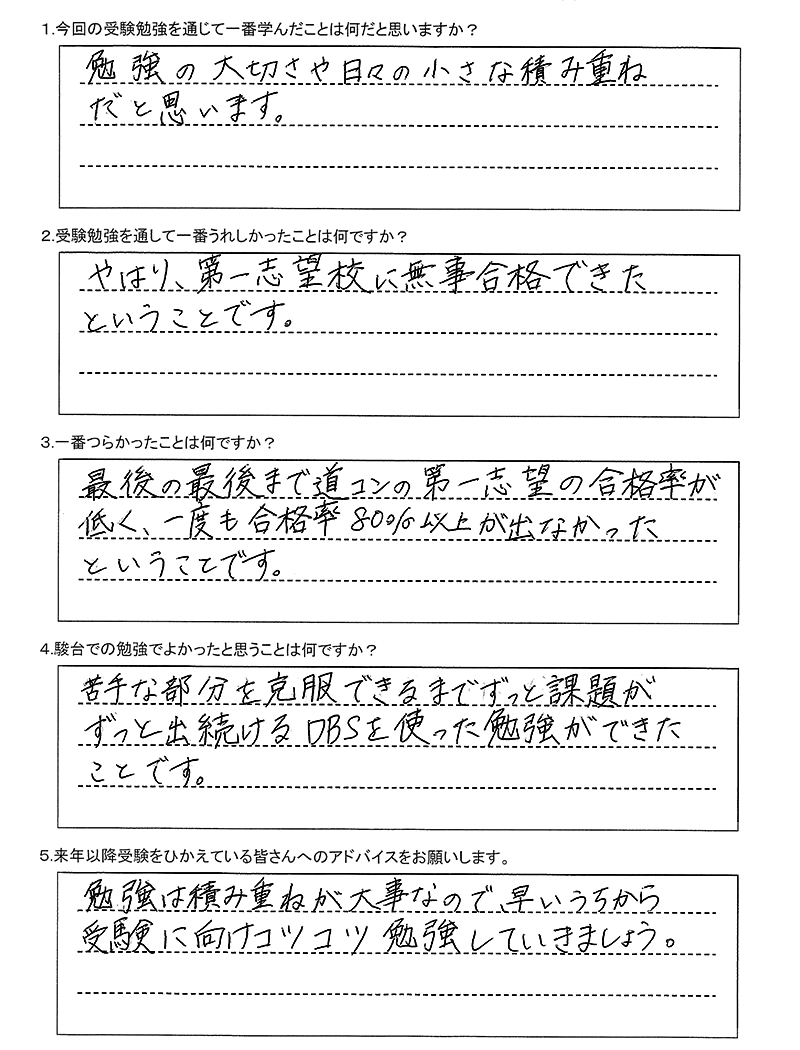 1.今回の受験勉強を通じて一番学んだことは何だと思いますか？
勉強の大切さや日々の小さな積み重ね
だと思います。
2.受験勉強を通して一番うれしかったことは何ですか？
やはり、第一志望校に無事合格できた
ということです。
3.一番つらかったことは何ですか？
最後の最後まで道コンの第一志望の合格率が
低く、一度も合格率80%以上が出なかった
ということです。
4.駿台での勉強でよかったと思うことは何ですか？
苦手な部分を克服できるまでずっと課題が
ずっと出続けるDBSを使った勉強ができた
ことです。
5.来年以降受験をひかえている皆さんへのアドバイスをお願いします。
勉強は積み重ねが大事なので、早いうちから
受験に向けコツコツ勉強していきましょう。